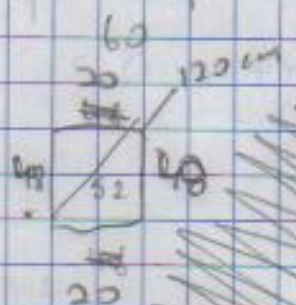 60
20
120 cm
48
52
48
20